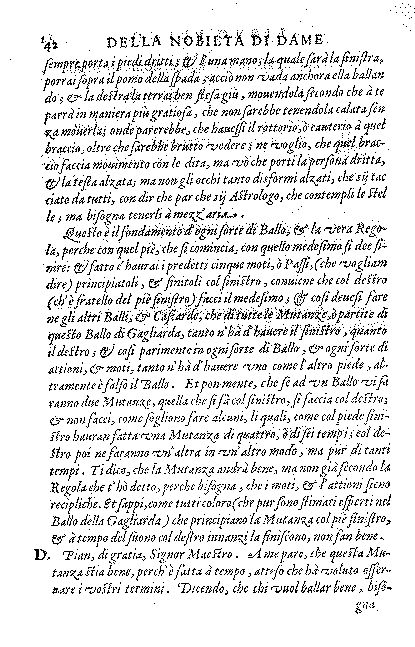 42 DELLA NOBILTÀ DI DAME
sempre porta i piedi dritti; & l'una mano; la quale sarà la sinistra,
porrai sopra il pomo della spada; acciò non vada anchora ella ballan
do; & la destra la terrai ben stesa giù, movendola secondo che à te
parrà in maniera più gratiosa, che non sarebbe tenendola calata sen
za mouerla; onde parerebbe, che hauessi il rottorio, ò cauterio à quel
braccio, oltre che sarebbe brutto vedere; ne voglio, che quel brac-
cio faccia mouimento con le dita, ma vò che porti la persona dritta,
& la testa alzata; ma non gli occhi tanto disformi alzati, che sij tac
ciato da tutti, con dir che par che sij Astrologo, che contempli le stel
le; ma bisogna tenerli à mezz'aria.
Questo è il fondamento d'ogni sorte di Ballo, & la vera Rego-
la, perche con quel piè, che si comincia, con quello medesimo si dee fi-
nire: & fatto c'haurai i predetti cinque moti, ò Passi, (che vogliam
dire) principiatoli, & finitoli col sinistro, conuiene che col destro
(ch'è fratello del piè sinistro) facci il medesimo; & così deuesi fare
ne gli altri Balli, & Cascarde, che di tutte le Mutanze, ò partite di
questo Ballo di Gagliarda, tanto n'hà d'hauere il sinistro, quanto
il destro; & così parimente in ogni sorte di Ballo, & ogni sorte di
attioni, & moti, tanto n'hà d'hauere vno come l'altro piede, al-
tramente è falso il Ballo. Et pon mente, che se ad vn Ballo vi sa
ranno due Mutanze, quella che si fà col sinistro, si faccia col destro;
& non facci, come sogliono fare alcuni, li quali, come col piede sini-
stro hauran fatta vna Mutanza di quattro, ò di sei tempi; col de-
stro poi ne faranno vn'altra in vn'altro modo, ma pur di tanti
tempi. Ti dico, che la Mutanza andrà bene, ma non già secondo la
Regola che t'hò detto, perche bisogna, che i moti, & l'attioni sieno
recipliche. Et sappi, come tutti coloro (che pur sono stimati esperti nel
Ballo della Gagliarda) che principiano la Mutanza col piè sinistro,
& à tempo del suono col destro innanzi la finiscono, non fan bene.
D. Pian, di gratia, Signor Maestro. A me pare, che questa Mu-
tanza stia bene, perch'è fatta à tempo, atteso che hà voluto osser-
uare i vostri termini. Dicendo, che chi vuol ballar bene, biso-
gna